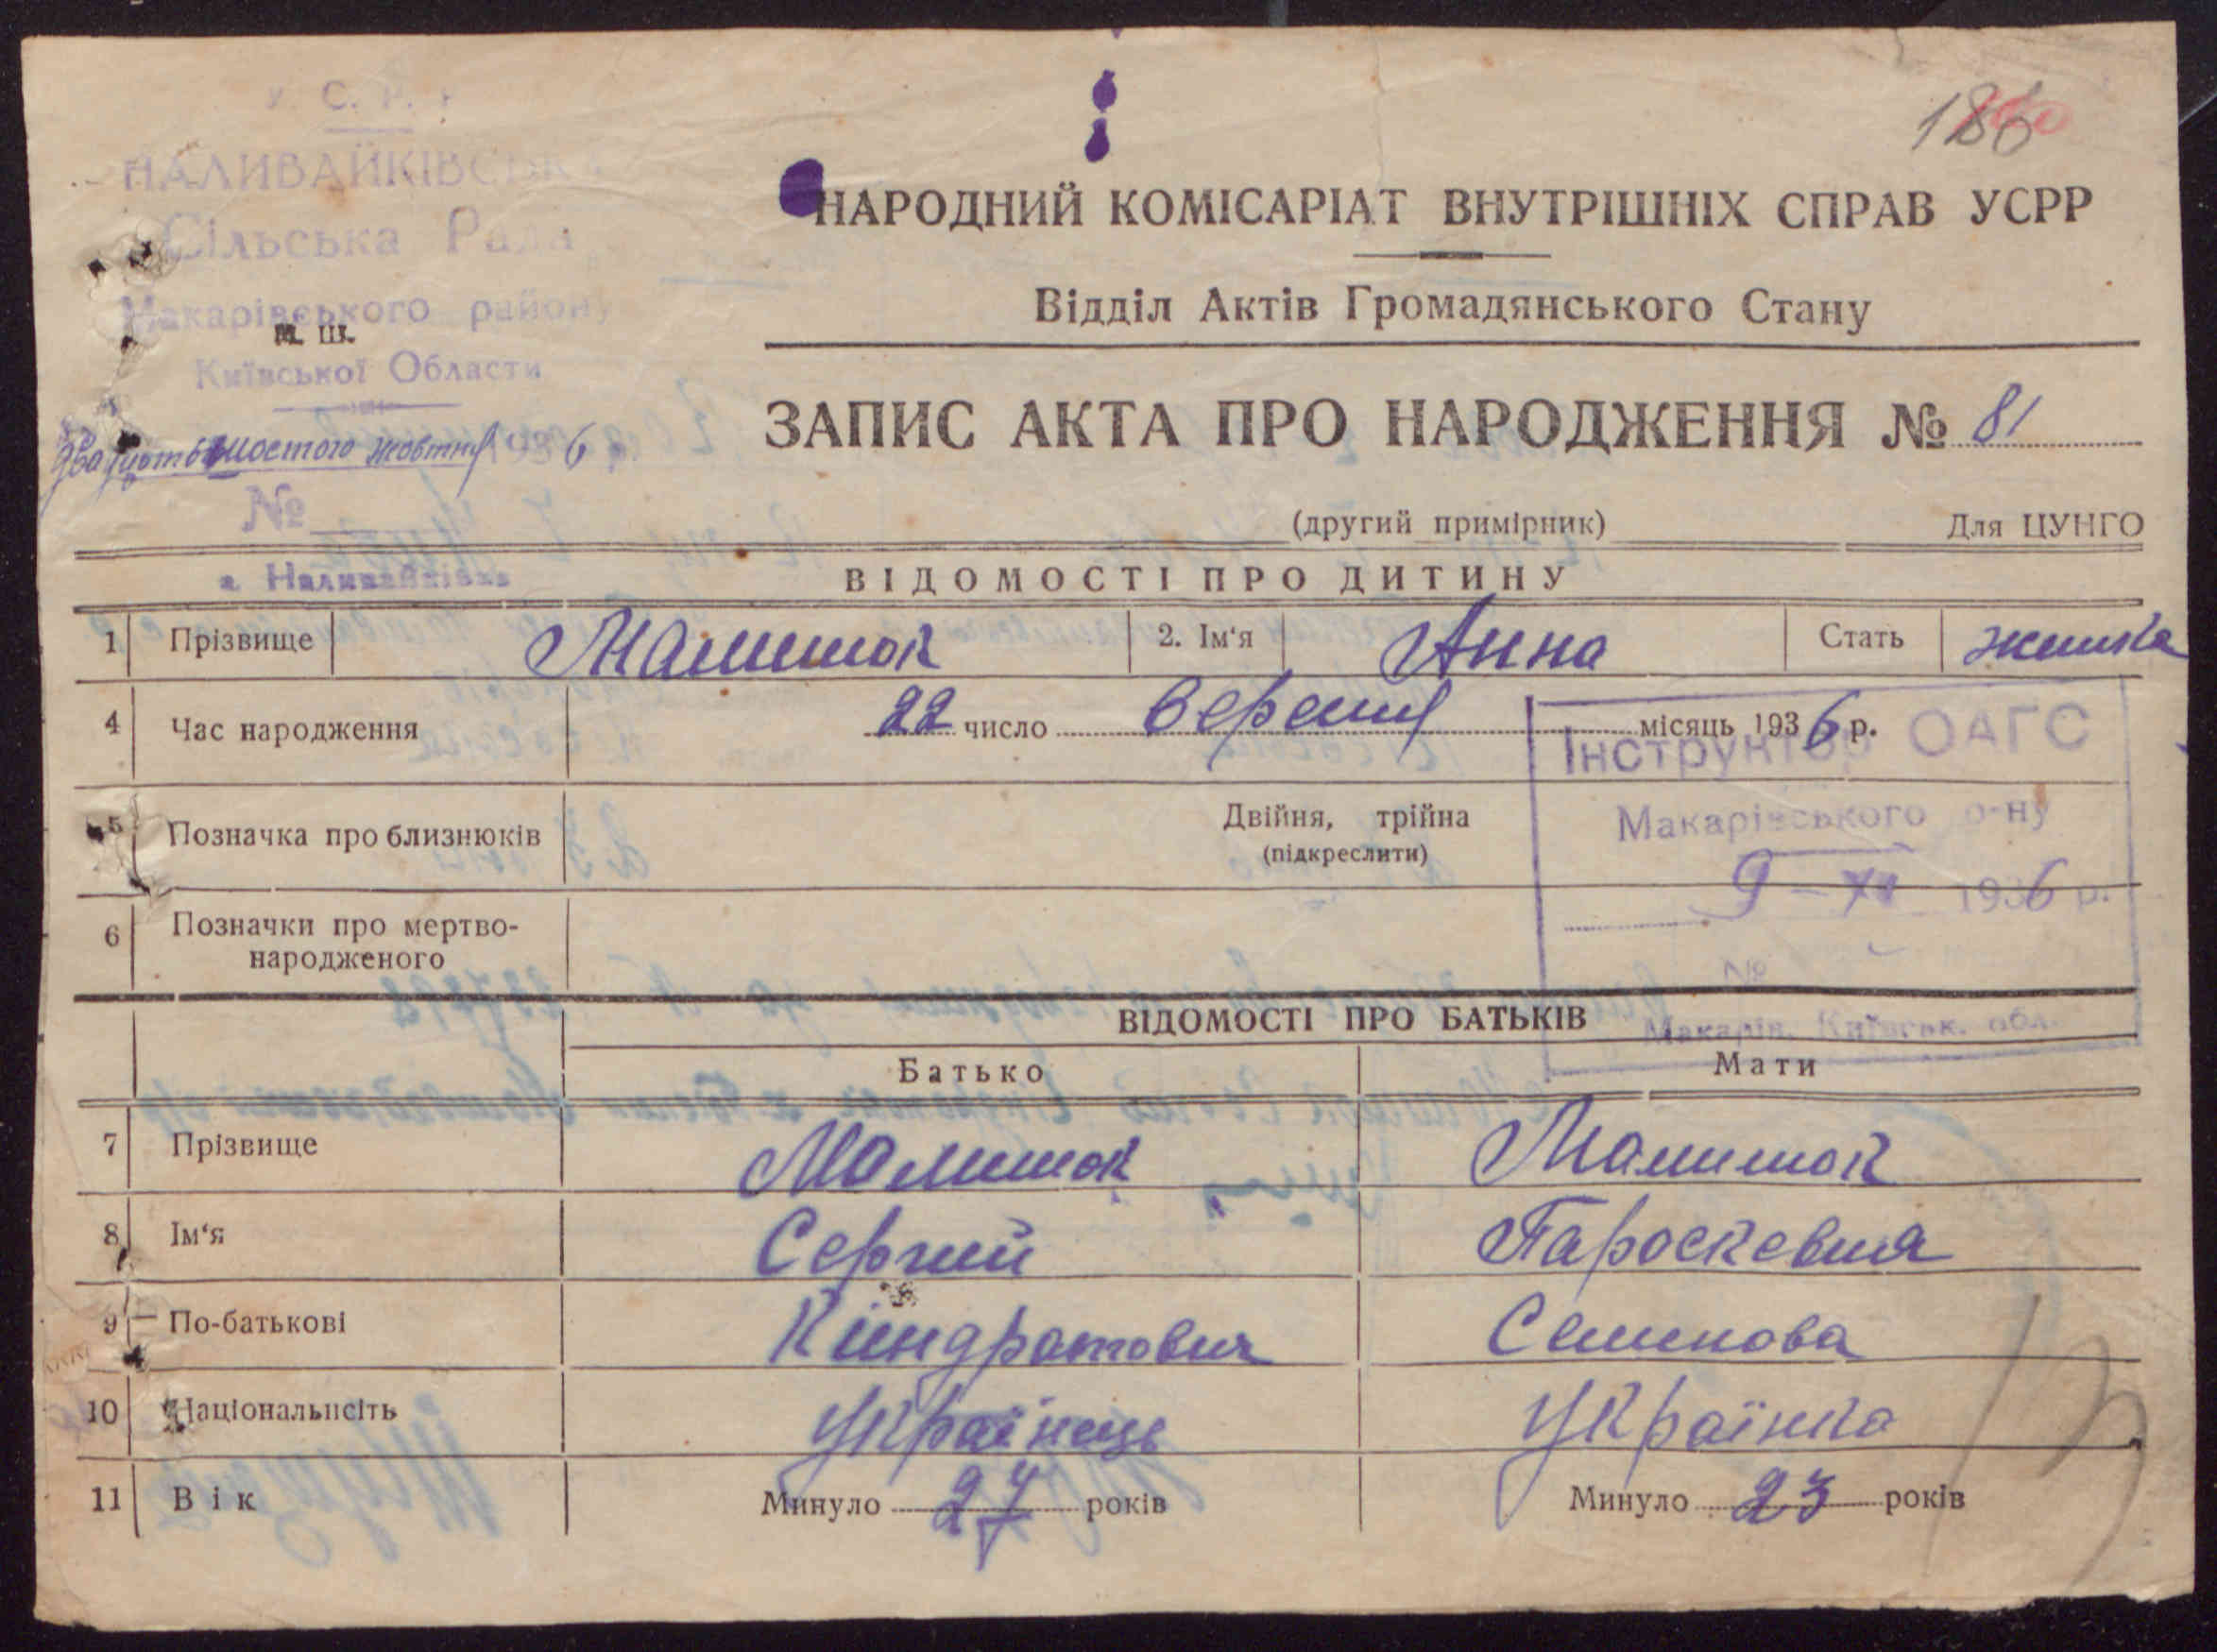 У. С. Р. Р.
НАЛИВАЙКІВСЬКА
Сільська Рада
Макарівського району
м. ш.
Київської Області
двадцять шостого жовтня 1936 р.
№
с. Наливайківка
186
НАРОДНИЙ КОМІСАРІАТ ВНУТРІШНІХ СПРАВ УСРР
Відділ Актів Громадянського Стану
ЗАПИС АКТА ПРО НАРОДЖЕННЯ № 81
(другий примірник) Для ЦУНГО
ВІДОМОСТІ ПРО ДИТИНУ
1 Прізвище Малишок 2. Ім‘я Анна Стать жіинка
4 Час народження 22 число вересня місяць 1936 р.
Інструктор ОАГС
5 Позначка про близнюків Двійня, трійна
(підкреслити)
Макарівського р-ну
9 – XI 1936 р.
6 Позначки про мертво-
народженого
№
Макарів, Київськ. обл.
ВІДОМОСТІ ПРО БАТЬКІВ
Батько Мати
7 Прізвище Малишок Малишок
8 Ім‘я Сергий Пароскевия
9 По-батькові Кіндратович Семенова
10 Національнсіть Українець Українка
11 Вік Минуло 27 років Минуло 23 років